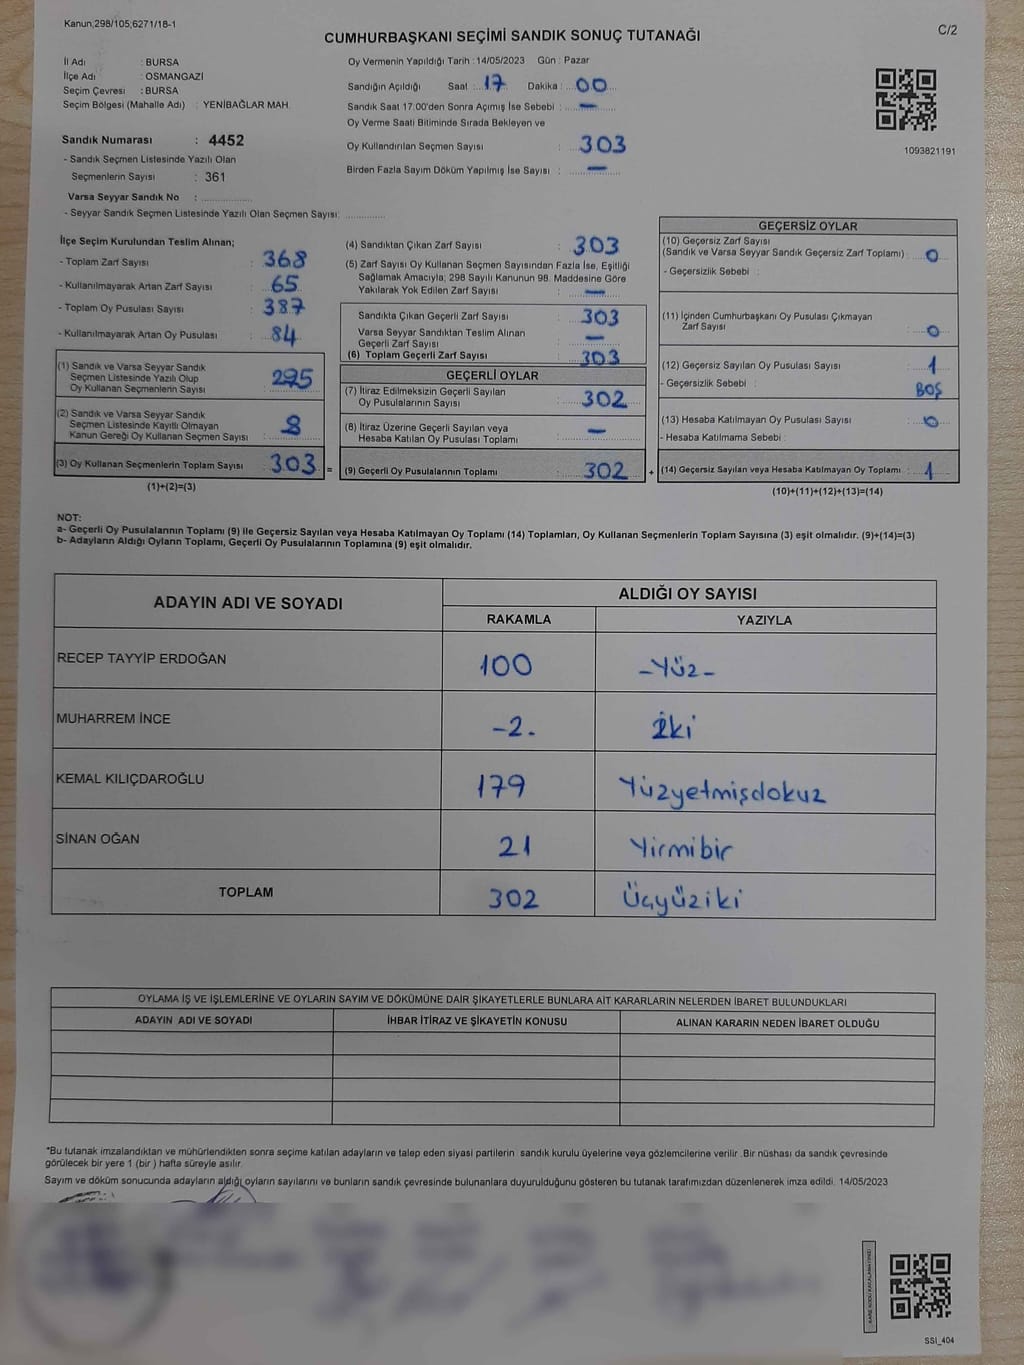 Kanun,298/105,6271/18-1
C/2
CUMHURBAŞKANI SEÇİMİ SANDIK SONUÇ TUTANAĞI
İl Adı : BURSA
İlçe Adı : OSMANGAZİ
Seçim Çevresi : BURSA
Seçim Bölgesi (Mahalle Adı) : YENİBAĞLAR MAH.
Sandık Numarası : 4452
- Sandık Seçmen Listesinde Yazılı Olan
Seçmenlerin Sayısı : 361
Varsa Seyyar Sandık No :
- Seyyar Sandık Seçmen Listesinde Yazılı Olan Seçmen Sayısı:
Oy Vermenin Yapıldığı Tarih : 14/05/2023 Gün : Pazar
Sandığın Açıldığı Saat : 17 Dakika : 00
Sandık Saat 17:00'den Sonra Açımış İse Sebebi : —
Oy Verme Saati Bitiminde Sırada Bekleyen ve
Oy Kullandırılan Seçmen Sayısı : 303
Birden Fazla Sayım Döküm Yapılmış İse Sayısı : —
1093821191
İlçe Seçim Kurulundan Teslim Alınan;
- Toplam Zarf Sayısı : 368
- Kullanılmayarak Artan Zarf Sayısı : 65
- Toplam Oy Pusulası Sayısı : 387
- Kullanılmayarak Artan Oy Pusulası : 84
(1) Sandık ve Varsa Seyyar Sandık
Seçmen Listesinde Yazılı Olup
Oy Kullanan Seçmenlerin Sayısı : 295
(2) Sandık ve Varsa Seyyar Sandık
Seçmen Listesinde Kayıtlı Olmayan
Kanun Gereği Oy Kullanan Seçmen Sayısı : 8
(3) Oy Kullanan Seçmenlerin Toplam Sayısı : 303 =
(1)+(2)=(3)
(4) Sandıktan Çıkan Zarf Sayısı : 303
(5) Zarf Sayısı Oy Kullanan Seçmen Sayısından Fazla İse, Eşitliği
Sağlamak Amacıyla; 298 Sayılı Kanunun 98. Maddesine Göre
Yakılarak Yok Edilen Zarf Sayısı : —
Sandıkta Çıkan Geçerli Zarf Sayısı : 303
Varsa Seyyar Sandıktan Teslim Alınan
Geçerli Zarf Sayısı : —
(6) Toplam Geçerli Zarf Sayısı : 303
GEÇERLİ OYLAR
(7) İtiraz Edilmeksizin Geçerli Sayılan
Oy Pusulalarının Sayısı : 302
(8) İtiraz Üzerine Geçerli Sayılan veya
Hesaba Katılan Oy Pusulası Toplamı : —
(9) Geçerli Oy Pusulalarının Toplamı : 302 +
GEÇERSİZ OYLAR
(10) Geçersiz Zarf Sayısı
(Sandık ve Varsa Seyyar Sandık Geçersiz Zarf Toplamı) : 0
- Geçersizlik Sebebi :
(11) İçinden Cumhurbaşkanı Oy Pusulası Çıkmayan
Zarf Sayısı : 0
(12) Geçersiz Sayılan Oy Pusulası Sayısı : 1
- Geçersizlik Sebebi : BOŞ
(13) Hesaba Katılmayan Oy Pusulası Sayısı : 0
- Hesaba Katılmama Sebebi :
(14) Geçersiz Sayılan veya Hesaba Katılmayan Oy Toplamı : 1
(10)+(11)+(12)+(13)=(14)
NOT:
a- Geçerli Oy Pusulalarının Toplamı (9) ile Geçersiz Sayılan veya Hesaba Katılmayan Oy Toplamı (14) Toplamları, Oy Kullanan Seçmenlerin Toplam Sayısına (3) eşit olmalıdır. (9)+(14)=(3)
b- Adayların Aldığı Oyların Toplamı, Geçerli Oy Pusulalarının Toplamına (9) eşit olmalıdır.
ADAYIN ADI VE SOYADI ALDIĞI OY SAYISI
RAKAMLA YAZIYLA
RECEP TAYYİP ERDOĞAN 100 -Yüz-
MUHARREM İNCE -2. İki
KEMAL KILIÇDAROĞLU 179 Yüzyetmişdokuz
SİNAN OĞAN 21 Yirmibir
TOPLAM 302 Üçyüziki
OYLAMA İŞ VE İŞLEMLERİNE VE OYLARIN SAYIM VE DÖKÜMÜNE DAİR ŞİKAYETLERLE BUNLARA AİT KARARLARIN NELERDEN İBARET BULUNDUKLARI
ADAYIN ADI VE SOYADI İHBAR İTİRAZ VE ŞİKAYETİN KONUSU ALINAN KARARIN NEDEN İBARET OLDUĞU
*Bu tutanak imzalandıktan ve mühürlendikten sonra seçime katılan adayların ve talep eden siyasi partilerin sandık kurulu üyelerine veya gözlemcilerine verilir .Bir nüshası da sandık çevresinde
görülecek bir yere 1 (bir ) hafta süreyle asılır.
Sayım ve döküm sonucunda adayların aldığı oyların sayılarını ve bunların sandık çevresinde bulunanlara duyurulduğunu gösteren bu tutanak tarafımızdan düzenlenerek imza edildi. 14/05/2023
SSI_404